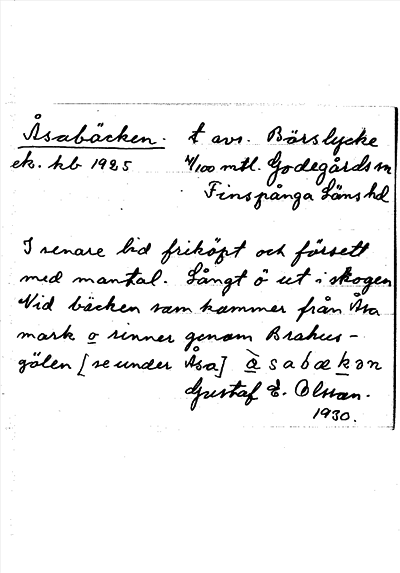 Åsabäcken. t avs. Börslycke
ek. kb 1925 4/100 mtl. Godegårds sn
Finspånga Läns hd
I senare tid friköpt och försett
med mantal. Långt ö ut i skogen
Vid bäcken som kommer från Åsa
mark o rinner genom Brahus-
gölen [se under Åsa] àsabækən
Gustaf E. Olsson.
1930.